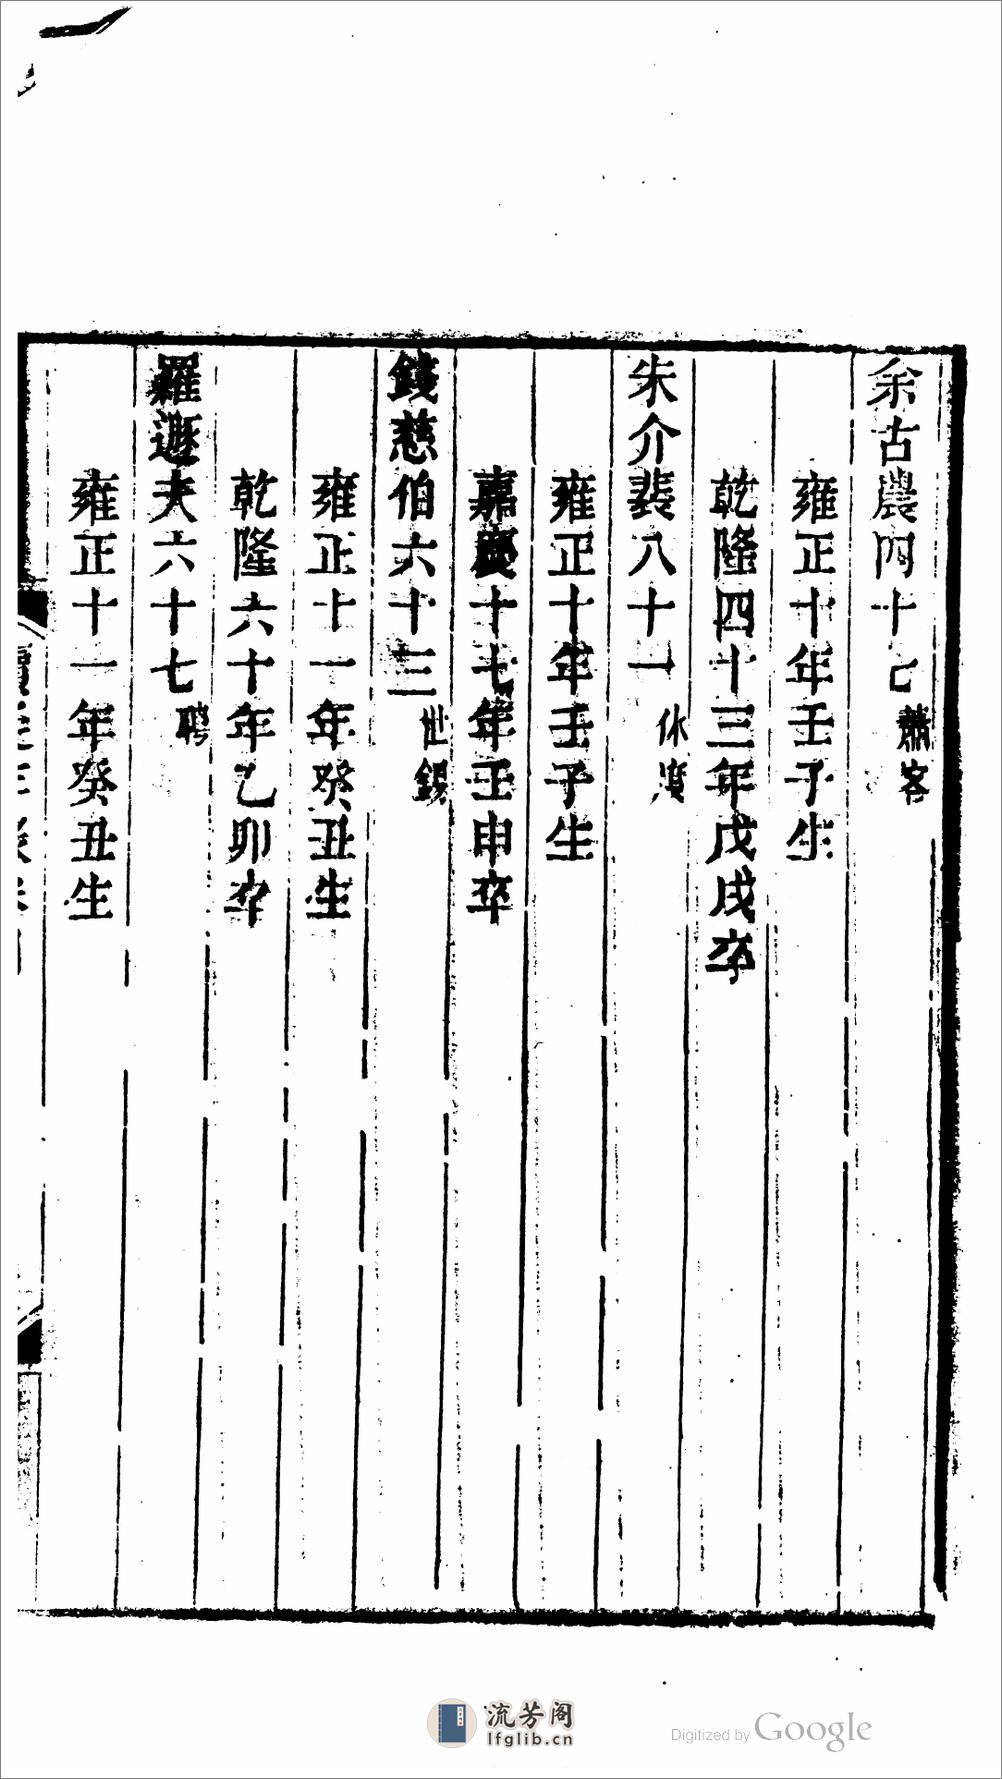 余古農四十七蕭客
雍正十年壬子生
乾隆四十三年戊戌卒
朱介裴八十一休度
雍正十年壬子生
嘉慶十七年壬申卒
錢慈伯六十三世錫
雍正十一年癸丑生
乾隆六十年乙卯卒
羅遯夫六十七聘
雍正十一年癸丑生
流芳阁
lfglib.cn
Digitized by Google